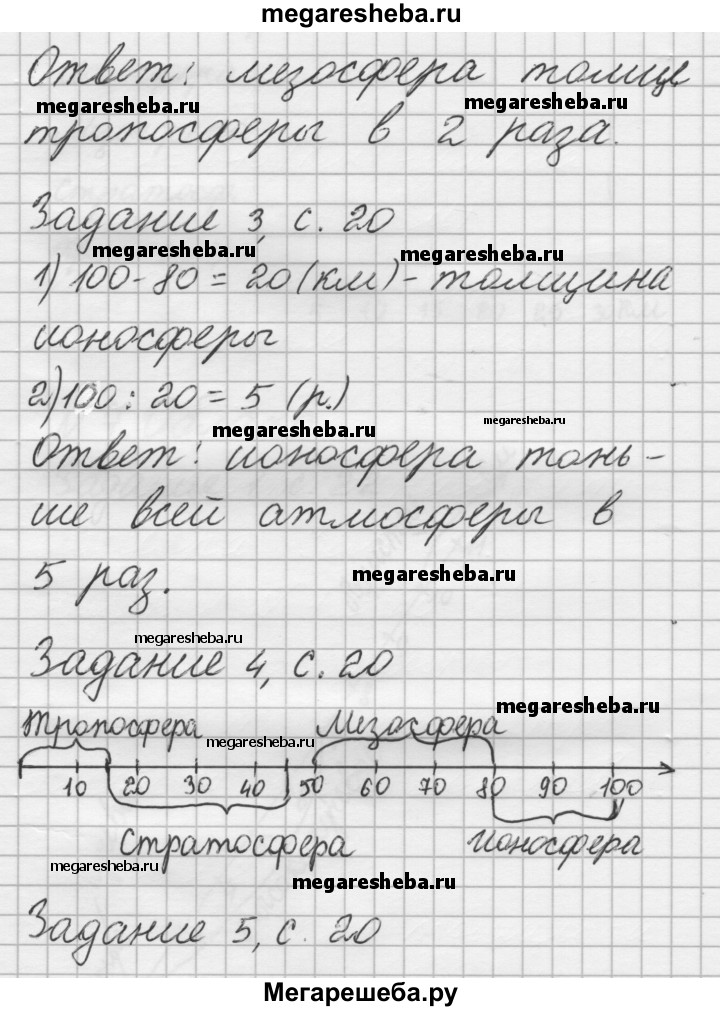 megaresheba.ru
Ответ: мезосфера толще
megaresheba.ru megaresheba.ru
тропосферы в 2 раза.
Задание 3, с. 20
megaresheba.ru megaresheba.ru
1) 100 - 80 = 20 (км) - толщина
ионосферы
2) 100 : 20 = 5 (р.)
megaresheba.ru megaresheba.ru
Ответ: ионосфера тонь-
ше всей атмосферы в
5 раз. megaresheba.ru
megaresheba.ru
Задание 4, с. 20
megaresheba.ru
Тропосфера megaresheba.ru Мезосфера
10 20 30 40 50 60 70 80 90 100
Стратосфера Ионосфера
megaresheba.ru
megaresheba.ru
Задание 5, с. 20
Мегарешеба.ру